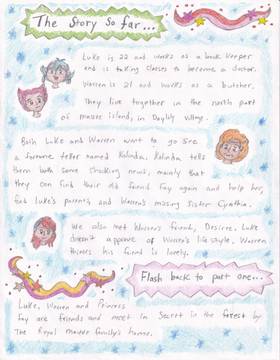 The Story So far...
Luke is 22 and works as a book keeper
and is taking classes to become a doctor.
Warren is 21 and works as a butcher.
They live together in the north part
of mauve island, in Daylily village.
Both Luke and Warren want to go see
a fortune teller named Kalinda. Kalinda tells
them both some shocking news, mainly that
they can find their old friend Fay again and help her,
find Luke's parents and Warren's missing sister Cynthia.
We also met Warren's friend, Desire, Luke
doesn't approve of Warren's life style, Warren
thinks his friend is lovely.
Flash back to part one...
Luke, Warren and Princess
Fay are friends and meet in Secret in the forest by
The Royal mauve family's home.